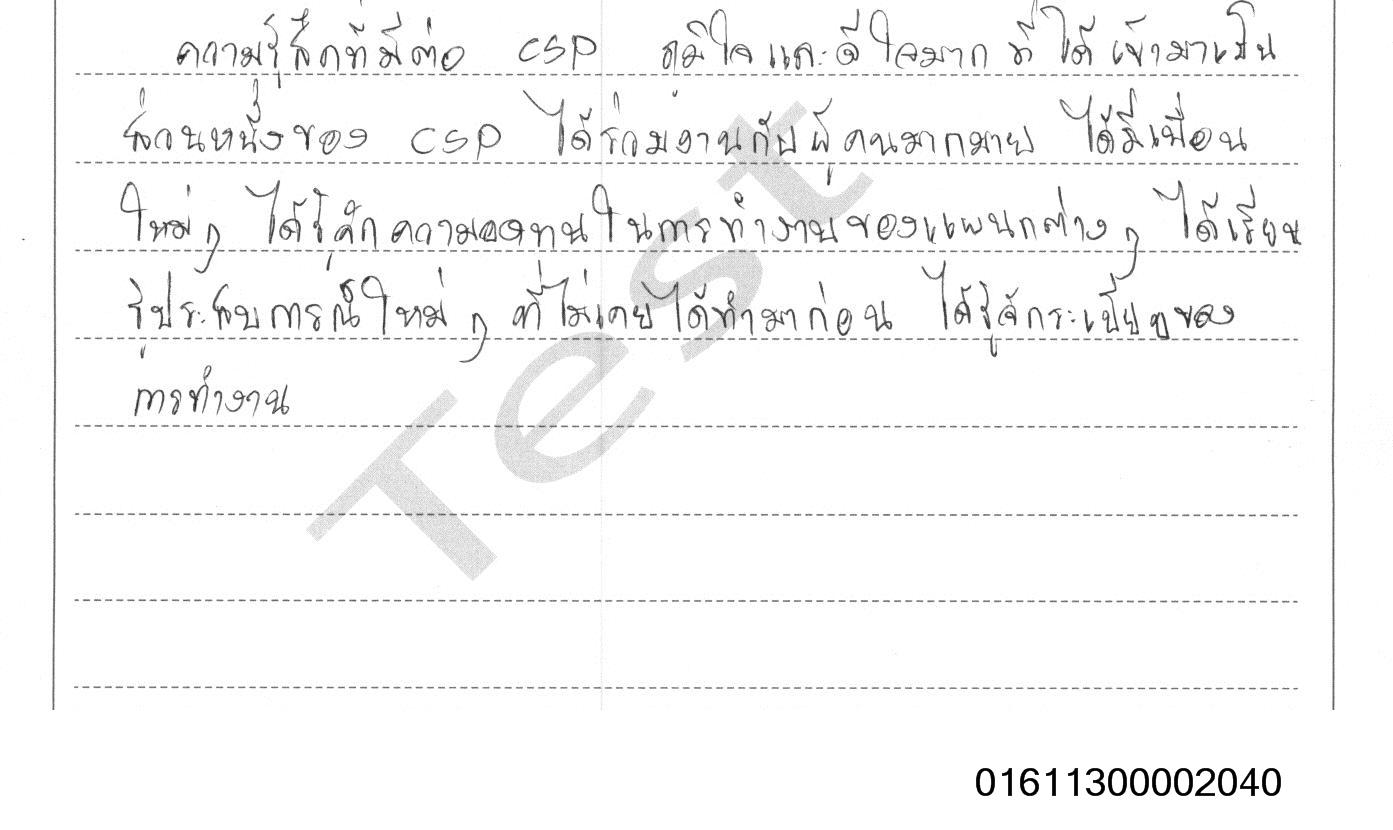 ความรู้สึกที่มีต่อ CSP ภูมิใจและดีใจมาก ที่ได้เข้ามาเป็น
ส่วนหนึ่งของ CSP ได้ร่วมงานกับผู้คนมากมาย ได้มีเพื่อน
ใหม่ๆ ได้รู้จักความอดทนในการทำงานของแผนกต่างๆ ได้เรียน
รู้ประสบการณ์ใหม่ๆ ที่ไม่เคยได้ทำมาก่อน ได้รู้จักระเบียบของ
การทำงาน
Test
01611300002040